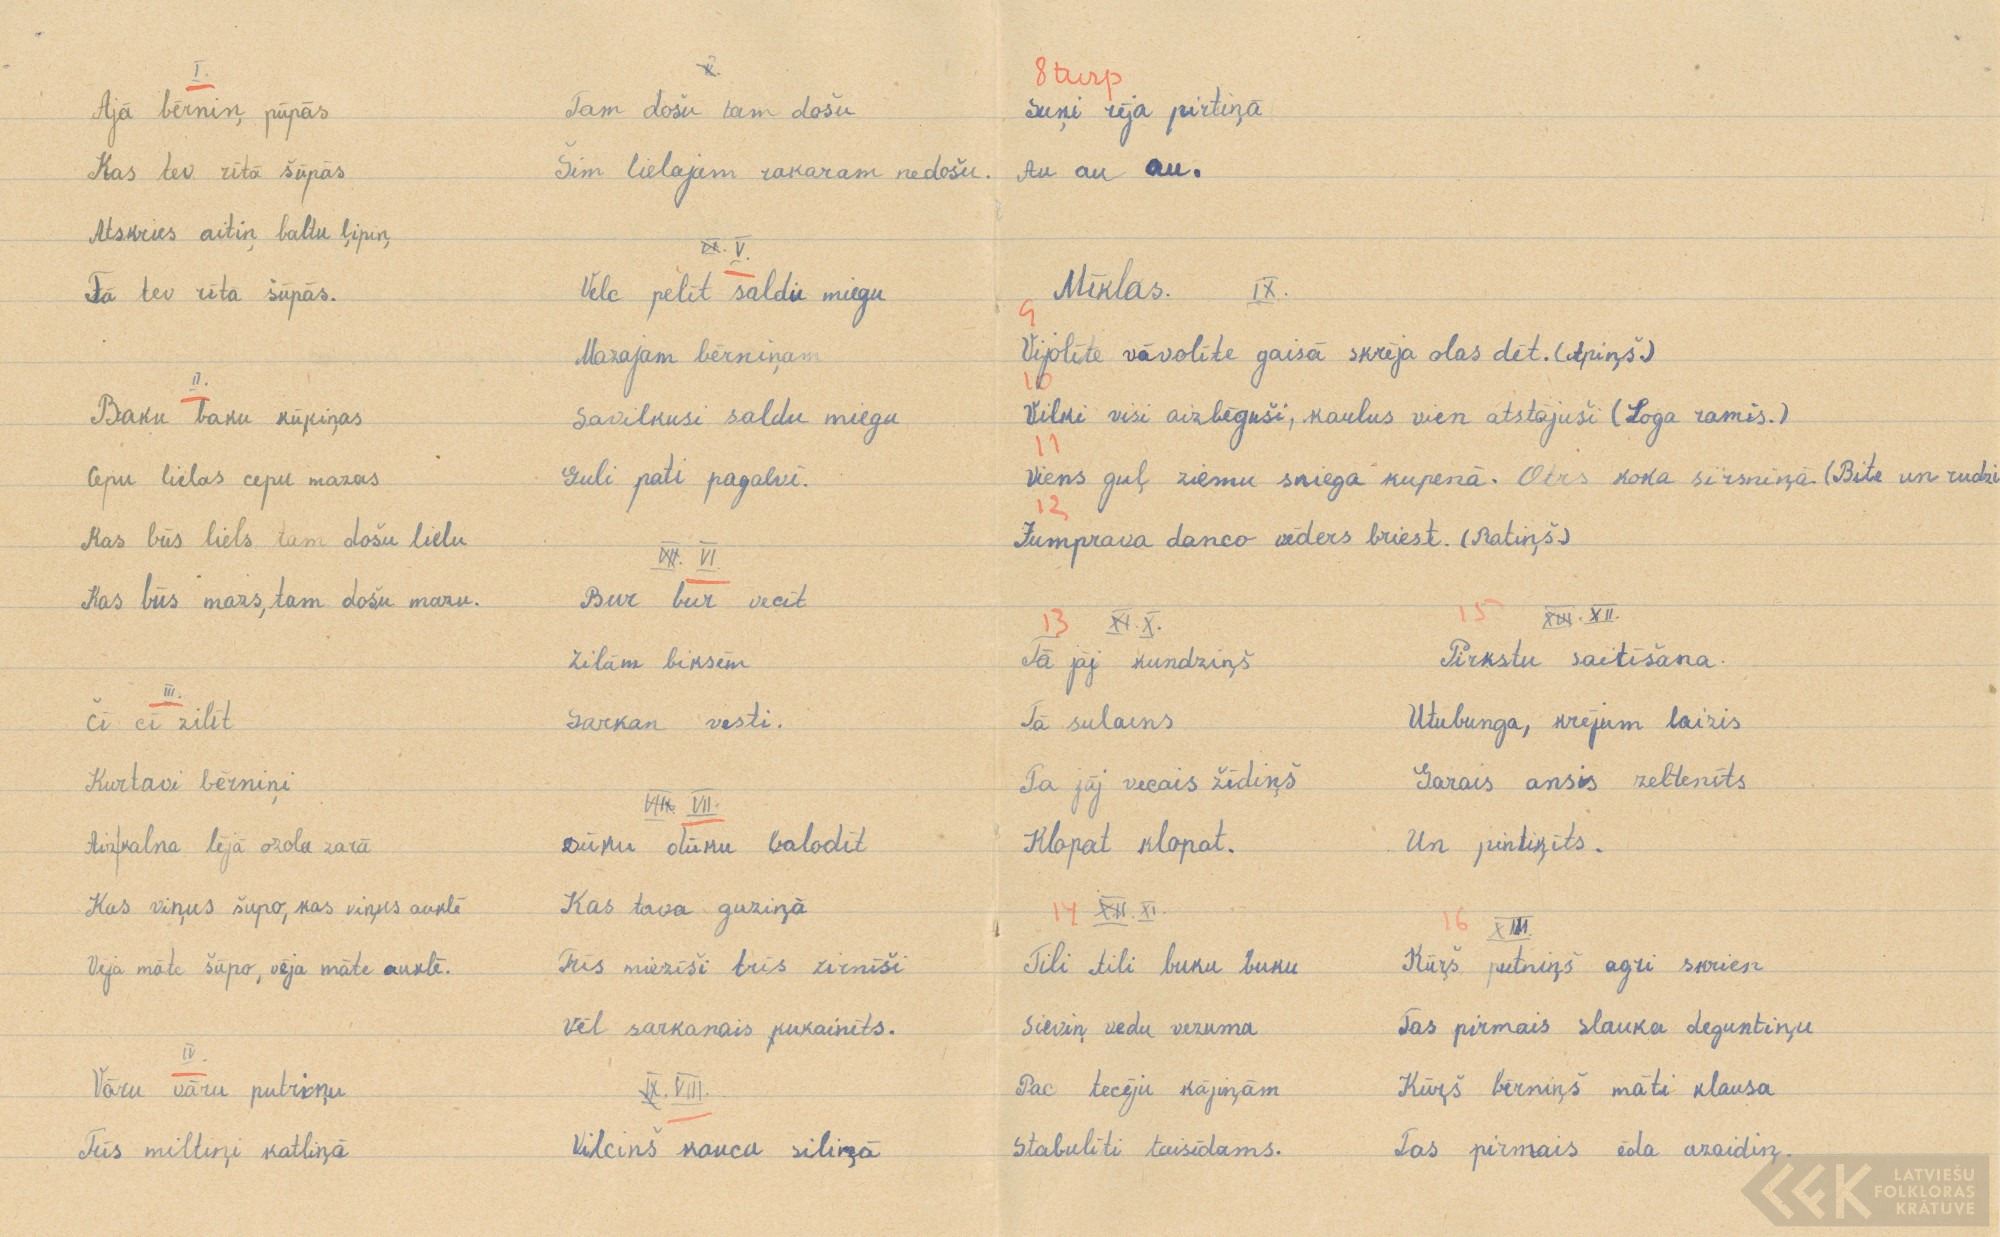 I.
Ajā bērniņ pūpās
Kas tev rītā šūpās
Atskries aitiņ baltu ļipiņ
Tā tev rīta šūpās.
II.
Baku baku kūķiņas
Cepu lielas cepu mazas
Kas būs liels tam došu lielu
Kas būs mazs, tam došu mazu.
III.
Či ci zilīt
Kurtavi bērniņi
Aizkalna lējā ozola zarā
Kas viņus šupo, kas viņus auklē
Vēja māte šūpo, vēja māte auklē.
IV.
Vāru vāru putriņu
Trīs miltiņi katliņā
Tam došu tam došu
Šim lielajam rakaram nedošu.
V.
Velc pelīt saldu miegu
Mazajam bērniņam
Savilkusi saldu miegu
Guli pati pagalvī.
VII. VI
Bur bur vecīt
Zilām biksēm
Sarkan vesti.
VIII. VII.
Dūku dūku balodīt
Kas tava guziņā
Trīs miezīši trīs zirnīši
Vēl sarkanais kukainīts.
IX. VIII.
Vilciņš kaucu siliņā
8 turp
Suņi rēja pirtiņā
Au au au.
Mīklas. IX.
9
Vijolīte vāvolīte gaisā skrēja olas dēt. (Apiņš.)
10
Vilki visi aizbēguši, kaulus vien atstājuši (Loga ramis.)
11
Viens guļ ziemu sniega kupenā. Otrs koka sirsniņā. (Bite un rudzi
12
Jumprava danco vēders briest. (Ratiņš.)
13 XI. X.
Tā jāj kundziņš
Tā sulains
Ta jāj vecais žīdiņš
Klopat klopat.
14 XII. XI.
Tili tili buku buku
Sieviņ vedu vezuma
Pac tecēju kājiņām
Stabulīti taisīdams.
15 XIII. XII.
Pirkstu saitīšana.
Utubunga, krējum laizis
Garais ansis zeltenīts
Un pintiķīts.
16 XIII.
Kūŗš putniņš agri skrien
Tas pirmais slauka deguntiņu
Kūŗš bērniņš māti klausa
Tas pirmais ēda azaidiņ.
LATVIEŠU
FOLKLORAS
KRĀTUVE